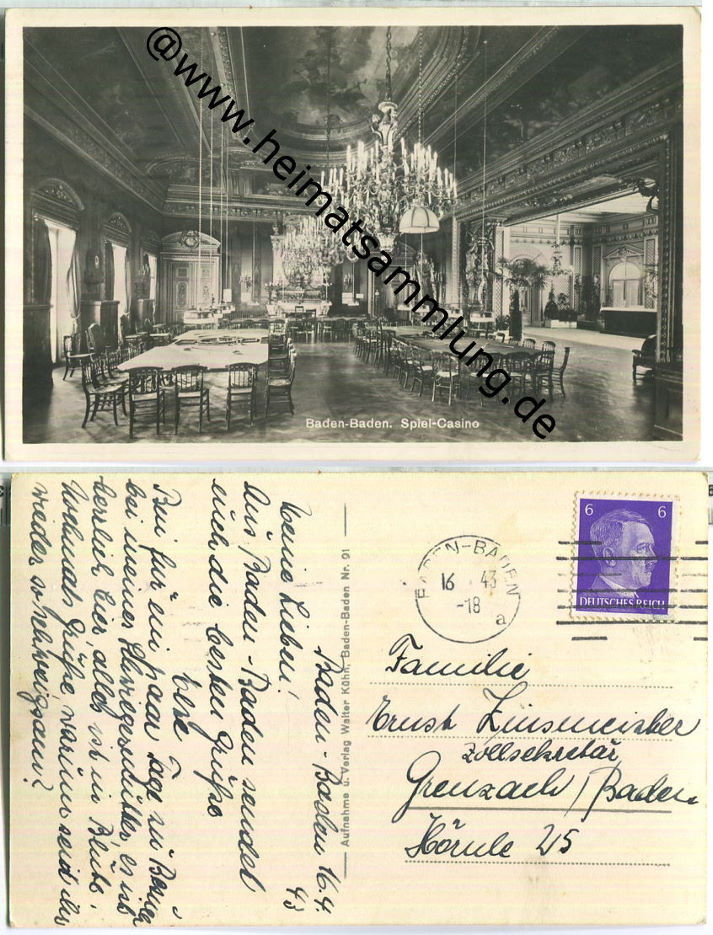 @www.heimatsammlung.de
Baden-Baden. Spiel-Casino
Baden-Baden 16.4.
43
Meine Lieben!
Aus Baden-Baden sendet
euch die besten Grüße
Bin für ein paar Tage zu Besuch
bei meiner Schwiegermutter, es ist
herrlich hier, alles ist in Blüte.
Grüße warum seid ihr
wieder so schweigsam?
Aufnahme u. Verlag Walter Kühn, Baden-Baden Nr. 91
BADEN-BADEN
16 43
-18
a
6 6
DEUTSCHES REICH
Familie
Ernst Zinsmeister
Zollsekretär
Grenzach / Baden
Hörnle 25